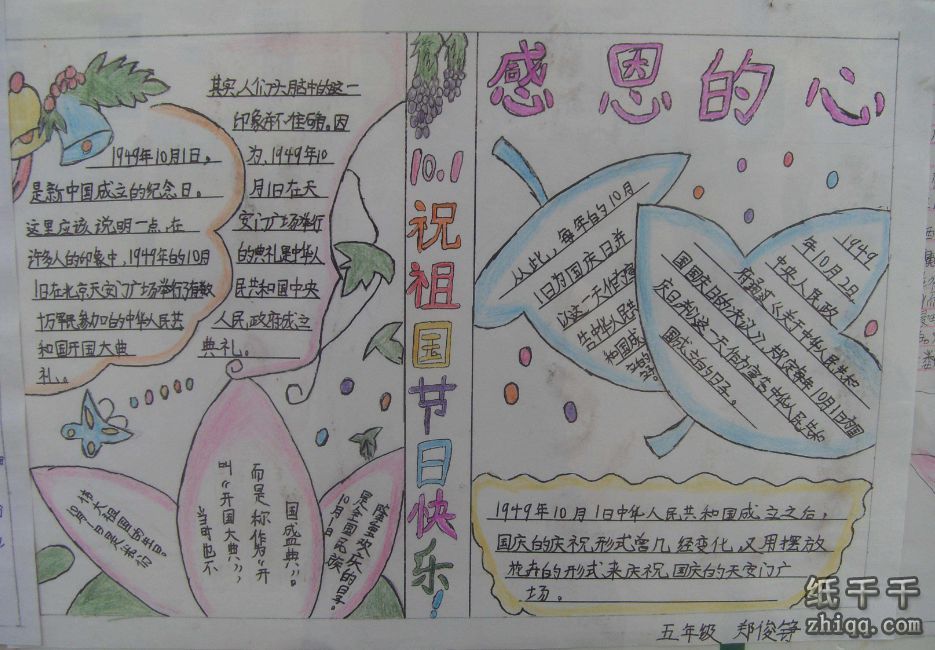 1949年10月1日。
是新中国成立的纪念日。
这里应该说明一点,在
许多人的印象中,1949年的10月
1日在北京天安门广场举行了有数
十万军民参加的中华人民共
和国开国大典
礼。
其实,人们头脑中的这一
印象并不准确。因
为,1949年10
月1日在天
安门广场举行
的典礼是中华人
民共和国中央
人民政府成立
典礼。
伟大祖国的生日。
10月1日是
国盛典》。
而是称作《开
叫《开国大典》,
当时也不
隆重欢庆的日子。
是全国民族
10月1日
10.1祝祖国节日快乐!
感恩的心
从此,每年的10月
1日为国庆日并
以这一天作为宣
告中华人民共
和国成
立的日子。
1949
年10月2日
中央人民政
府通过《关于中华人民共和
国国庆日的决议》,规定每年10月1日为国
庆日,并以这一天作为宣告中华人民共和
国成立的日子。
1949年10月1日中华人民共和国成立之后,
国庆的庆祝形式曾几经变化,又用摆放
花卉的形式来庆祝国庆的天安门广
场。
五年级 郑俊
纸千千
zhiqq.com